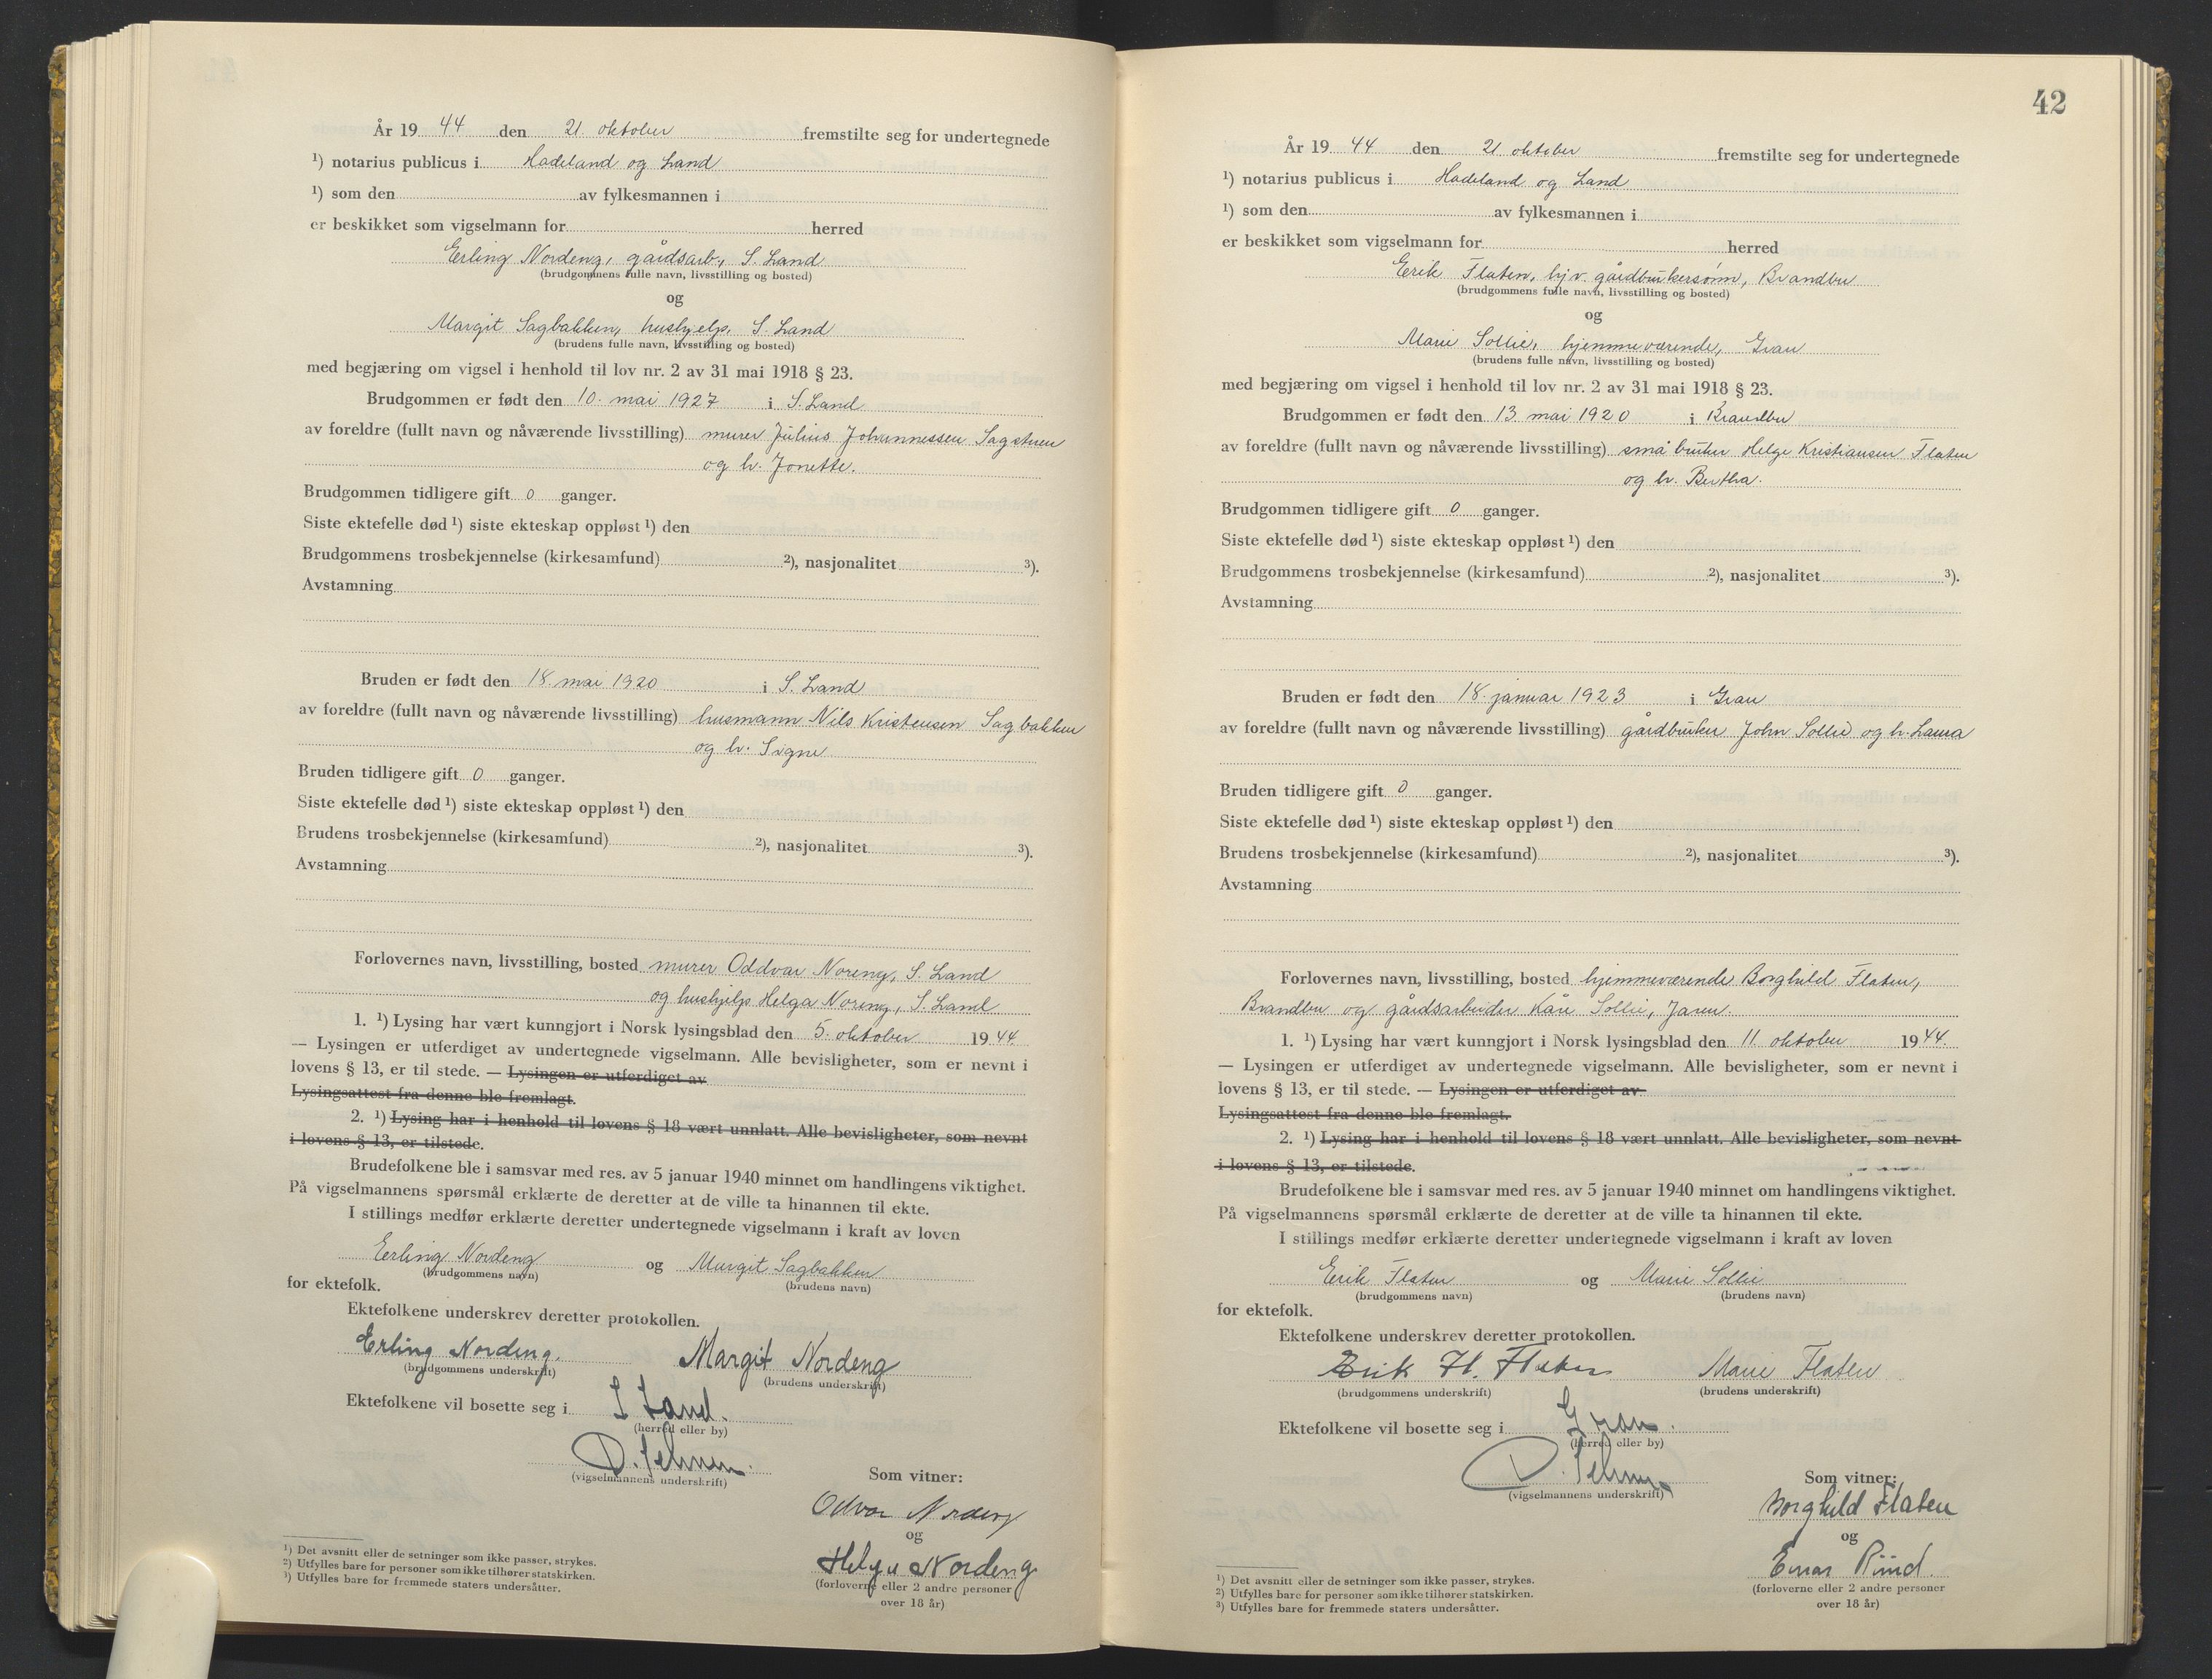 År 19 44 den 21 oktober fremstilte seg for undertegnede
¹) notarius publicus i Hadeland og Land
¹) som den av fylkesmannen i
er beskikket som vigselmann for herred
Erling Nordeng, gårdsarb., S. Land
(brudgommens fulle navn, livsstilling og bosted)
og
Margit Sagbakken, hushjelp, S. Land
(brudens fulle navn, livsstilling og bosted)
med begjæring om vigsel i henhold til lov nr. 2 av 31 mai 1918 § 23.
Brudgommen er født den 10. mai 1927 i S. Land
av foreldre (fullt navn og nåværende livsstilling) murer Julius Johannessen Sagstuen
og h. Jonette.
Brudgommen tidligere gift 0 ganger.
Siste ektefelle død ¹) siste ekteskap oppløst ¹) den
Brudgommens trosbekjennelse (kirkesamfund) ²), nasjonalitet ³).
Avstamning
Bruden er født den 18. mai 1920 i S. Land
av foreldre (fullt navn og nåværende livsstilling) husmann Nils Kristensen Sagbakken
og h. Signe
Bruden tidligere gift 0 ganger.
Siste ektefelle død ¹) siste ekteskap oppløst ¹) den
Brudens trosbekjennelse (kirkesamfund) ²), nasjonalitet ³).
Avstamning
Forlovernes navn, livsstilling, bosted murer Oddvar Noreng, S. Land
og hushjelp Helga Noreng, S. Land
1. ¹) Lysing har vært kunngjort i Norsk lysingsblad den 5. oktober 19 44
— Lysingen er utferdiget av undertegnede vigselmann. Alle bevisligheter, som er nevnt i
lovens § 13, er til stede. — Lysingen er utferdiget av
Lysingsattest fra denne ble fremlagt.
2. ¹) Lysing har i henhold til lovens § 18 vært unnlatt. Alle bevisligheter, som nevnt
i lovens § 13, er tilstede.
Brudefolkene ble i samsvar med res. av 5 januar 1940 minnet om handlingens viktighet.
På vigselmannens spørsmål erklærte de deretter at de ville ta hinannen til ekte.
I stillings medfør erklærte deretter undertegnede vigselmann i kraft av loven
Erling Nordeng og Margit Sagbakken
(brudgommens navn) (brudens navn)
for ektefolk.
Ektefolkene underskrev deretter protokollen.
Erling Nordeng. Margit Nordeng
(brudgommens underskrift) (brudens underskrift)
Ektefolkene vil bosette seg i S Land.
(herred eller by)
D.
(vigselmannens underskrift)
Som vitner:
Odvar Nordeng
og
Helga Nordeng
(forloverne eller 2 andre personer
over 18 år)
¹) Det avsnitt eller de setninger som ikke passer, strykes.
²) Utfylles bare for personer som ikke tilhører statskirken.
³) Utfylles bare for fremmede staters undersåtter.
42
År 19 44 den 21 oktober fremstilte seg for undertegnede
¹) notarius publicus i Hadeland og Land
¹) som den av fylkesmannen i
er beskikket som vigselmann for herred
Erik Flaten, hjv. gårdbrukersønn, Brandbu
(brudgommens fulle navn, livsstilling og bosted)
og
Marie Sollie, hjemmeværende, Gran
(brudens fulle navn, livsstilling og bosted)
med begjæring om vigsel i henhold til lov nr. 2 av 31 mai 1918 § 23.
Brudgommen er født den 13 mai 1920 i Brandbu
av foreldre (fullt navn og nåværende livsstilling) småbruker Helge Kristiansen Flaten
og h. Bertha.
Brudgommen tidligere gift 0 ganger.
Siste ektefelle død ¹) siste ekteskap oppløst ¹) den
Brudgommens trosbekjennelse (kirkesamfund) ²), nasjonalitet ³).
Avstamning
Bruden er født den 18. januar 1923 i Gran
av foreldre (fullt navn og nåværende livsstilling) gårdbruker John Sollie og h. Laura
Bruden tidligere gift 0 ganger.
Siste ektefelle død ¹) siste ekteskap oppløst ¹) den
Brudens trosbekjennelse (kirkesamfund) ²), nasjonalitet ³).
Avstamning
Forlovernes navn, livsstilling, bosted hjemmeværende Borghild Flaten,
Brandbu og gårdsarbeider Kåre Sollie, Jaren.
1. ¹) Lysing har vært kunngjort i Norsk lysingsblad den 11 oktober 19 44.
— Lysingen er utferdiget av undertegnede vigselmann. Alle bevisligheter, som er nevnt i
lovens § 13, er til stede. — Lysingen er utferdiget av
Lysingsattest fra denne ble fremlagt.
2. ¹) Lysing har i henhold til lovens § 18 vært unnlatt. Alle bevisligheter, som nevnt
i lovens § 13, er tilstede.
Brudefolkene ble i samsvar med res. av 5 januar 1940 minnet om handlingens viktighet.
På vigselmannens spørsmål erklærte de deretter at de ville ta hinannen til ekte.
I stillings medfør erklærte deretter undertegnede vigselmann i kraft av loven
Erik Flaten og Marie Sollie
(brudgommens navn) (brudens navn)
for ektefolk.
Ektefolkene underskrev deretter protokollen.
Erik H. Flaten Marie Flaten
(brudgommens underskrift) (brudens underskrift)
Ektefolkene vil bosette seg i Gran.
(herred eller by)
D.
(vigselmannens underskrift)
Som vitner:
Borghild Flaten
og
Einar
(forloverne eller 2 andre personer
over 18 år)
¹) Det avsnitt eller de setninger som ikke passer, strykes.
²) Utfylles bare for personer som ikke tilhører statskirken.
³) Utfylles bare for fremmede staters undersåtter.